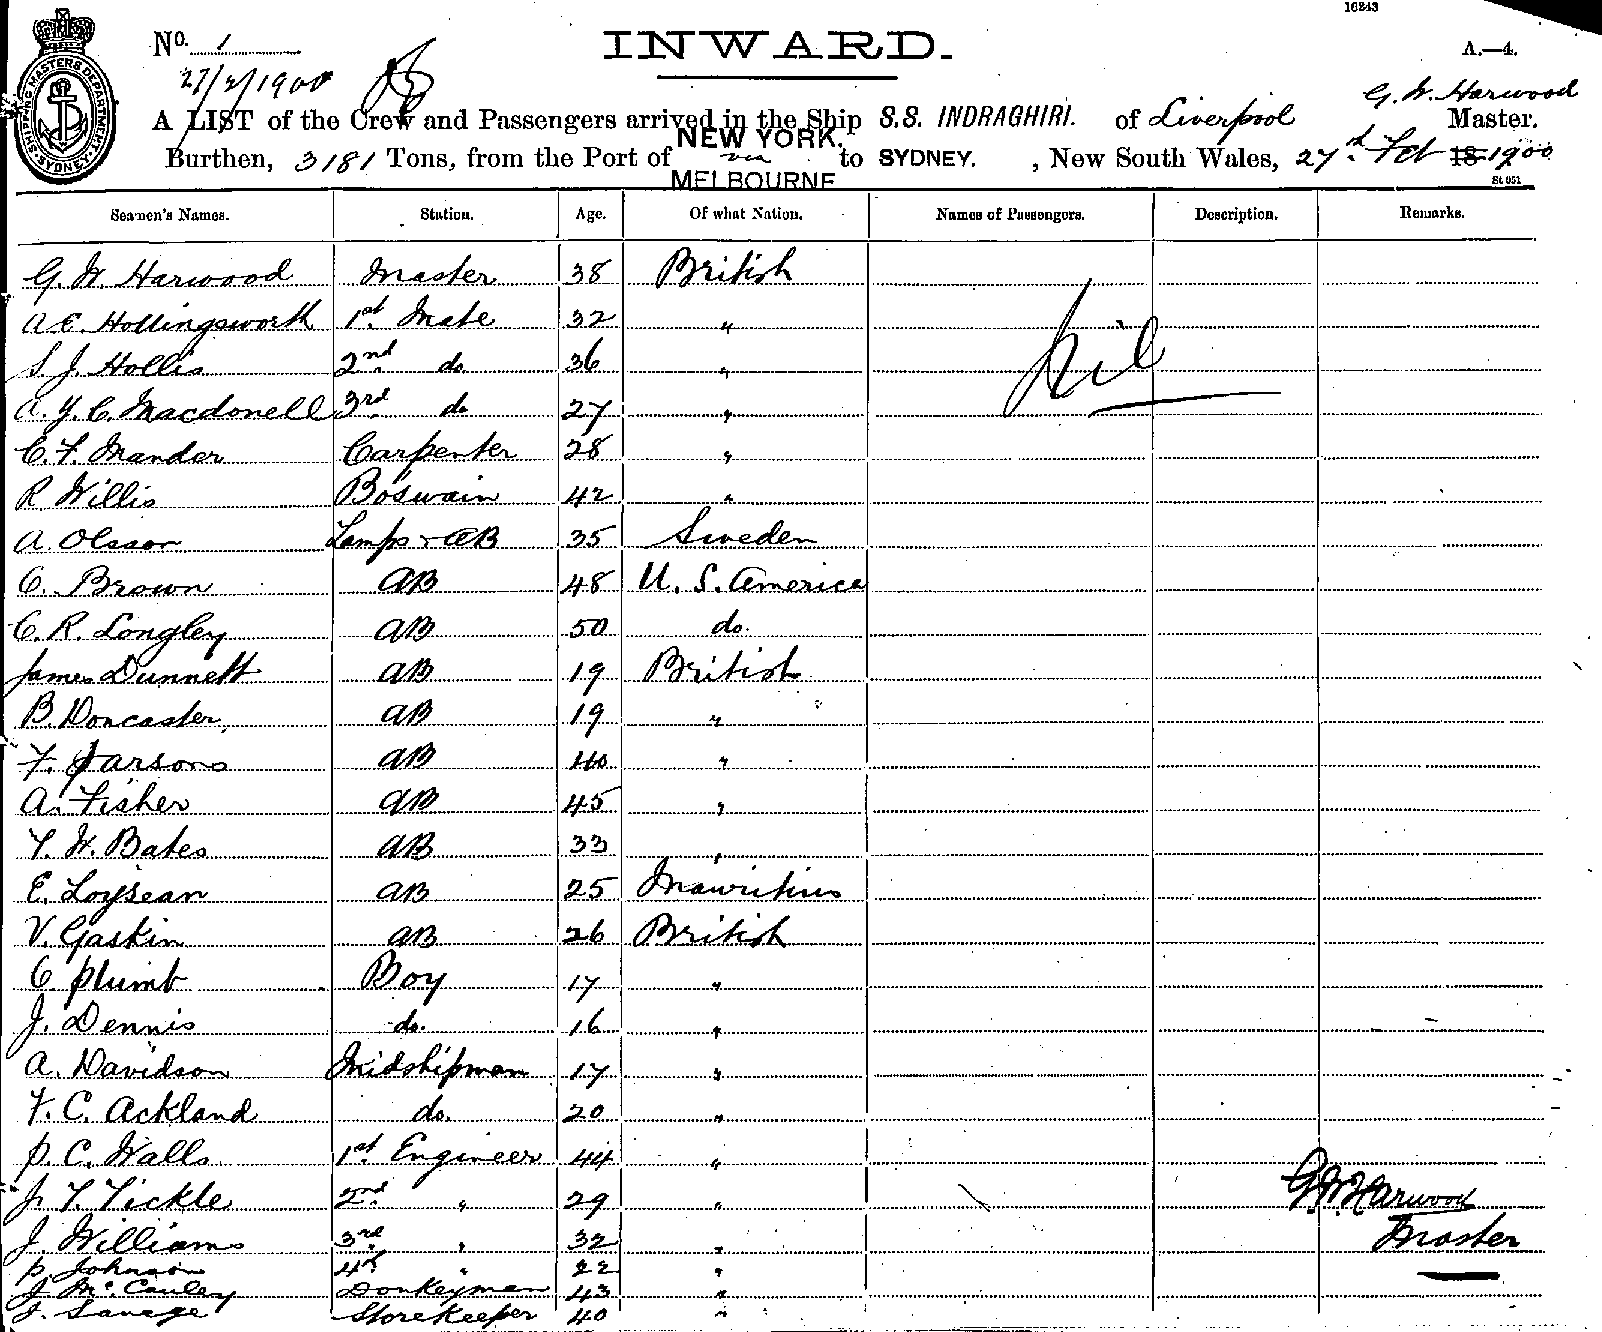 16243
No. 1
INWARD.
A.—4.
27/2/1900
G. W. Harwood
A LIST of the Crew and Passengers arrived in the Ship S.S. INDRAGHIRI. of Liverpool Master.
NEW YORK.
Burthen, 3181 Tons, from the Port of via to SYDNEY. , New South Wales, 27th Feb 18 1900
MELBOURNE
St 951
SHIPPING MASTERS DEPARTMENT SYDNEY
Seamen's Names. Station. Age. Of what Nation. Names of Passengers. Description. Remarks.
G. W. Harwood Master 38 British
A E. Hollingsworth 1st. Mate 32 "
S. J. Hollis 2nd do 36 "
Nil
A. Y. C. Macdonell 3rd do 27 "
C. F. Mander Carpenter 28 "
R Willis Boswain 42 "
A. Olsson Lamps & AB 35 Sweden
C. Brown AB 48 U. S. America
C. R. Longley AB 50 do.
James Dunnett AB 19 British
B. Doncaster AB 19 "
F. Parsons AB 40 "
A. Fisher AB 45 "
T. W. Bates AB 33 "
E. Loysean AB 25 Mauritius
V. Gaskin AB 26 British
C Plumb Boy 17 "
J. Dennis do. 16 "
A. Davidson Midshipman 17 "
F. C. Ackland do. 20 "
P. C. Walls 1st Engineer 44 "
J. T. Tickle 2nd " 29 "
G. W. Harwood
J. Williams 3rd " 32 "
Master
P. Johnson 4th " 22 "
J. McCauley Donkeyman 43 "
J. Savage Storekeeper 40 "